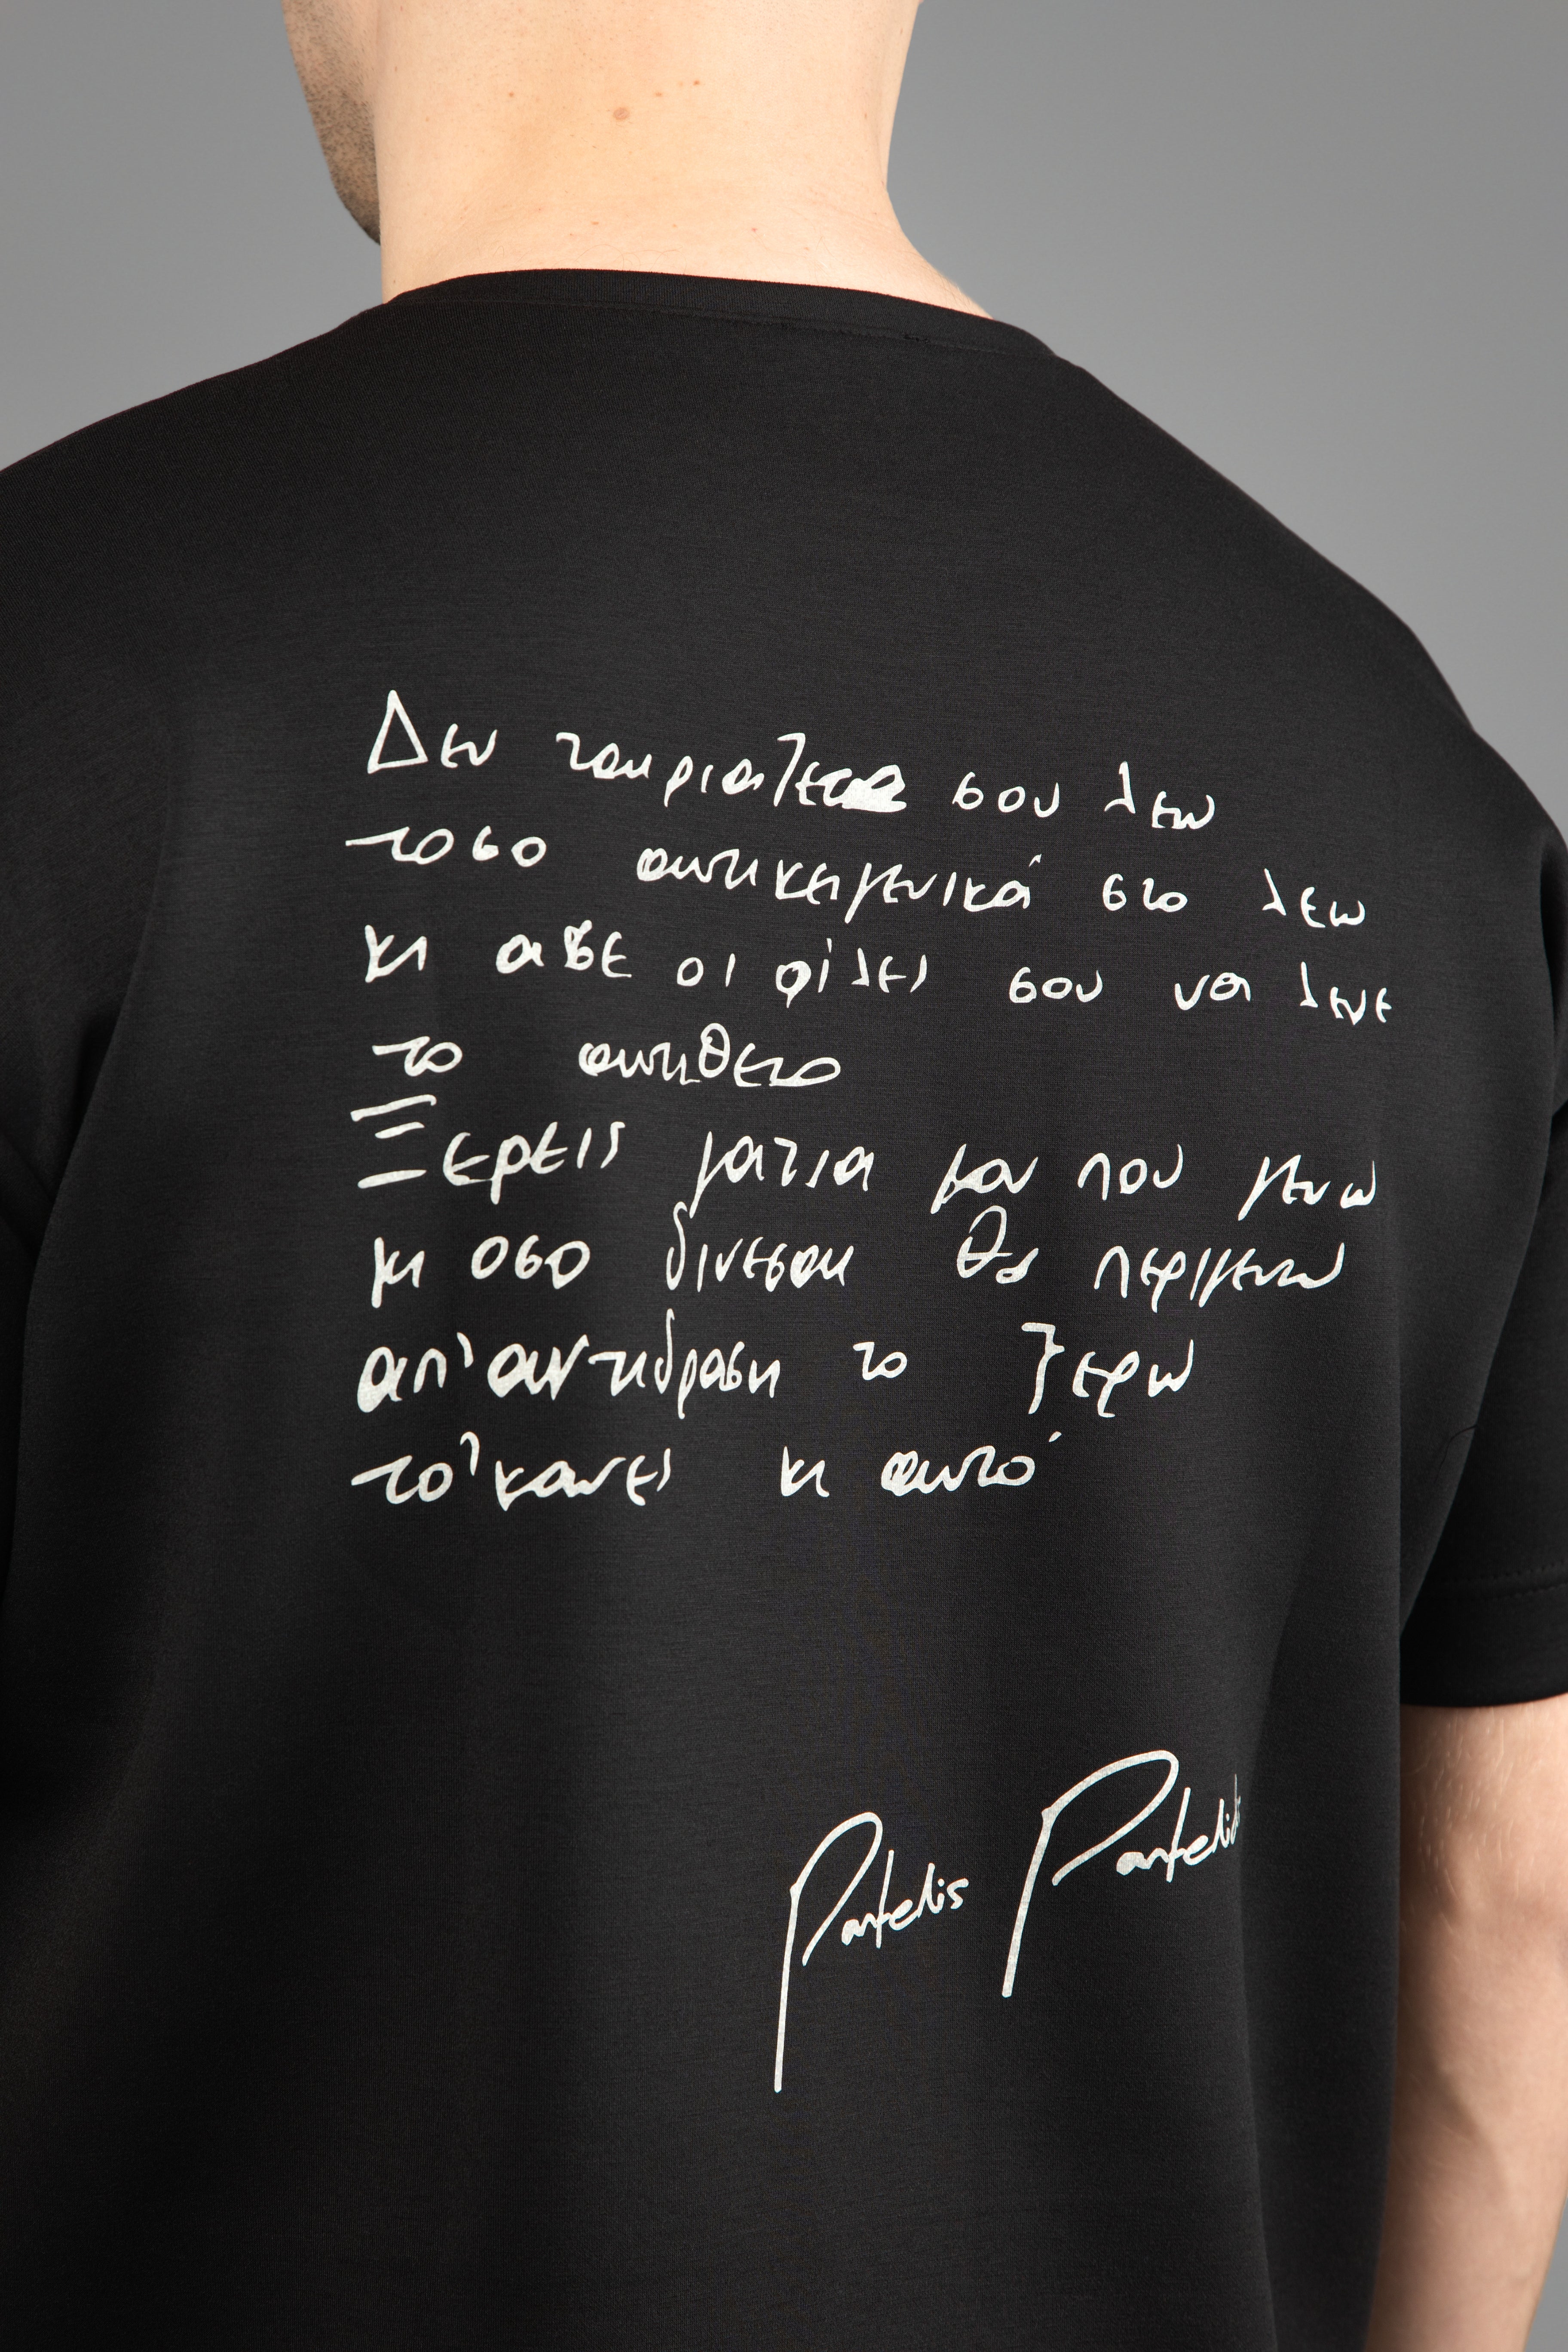 Δεν ταιριαζετε σου λεω
τοσο αντικειμενικά στο λεω
κι ασε οι φίλες σου να λενε
το αντιθετο
Ξερεις ματια μου που μενω
κι οσο δινεσαι θα περιμενω
απ'αντιδραση το ξερω
το'κανες κι αυτό
Pantelis Pantelid